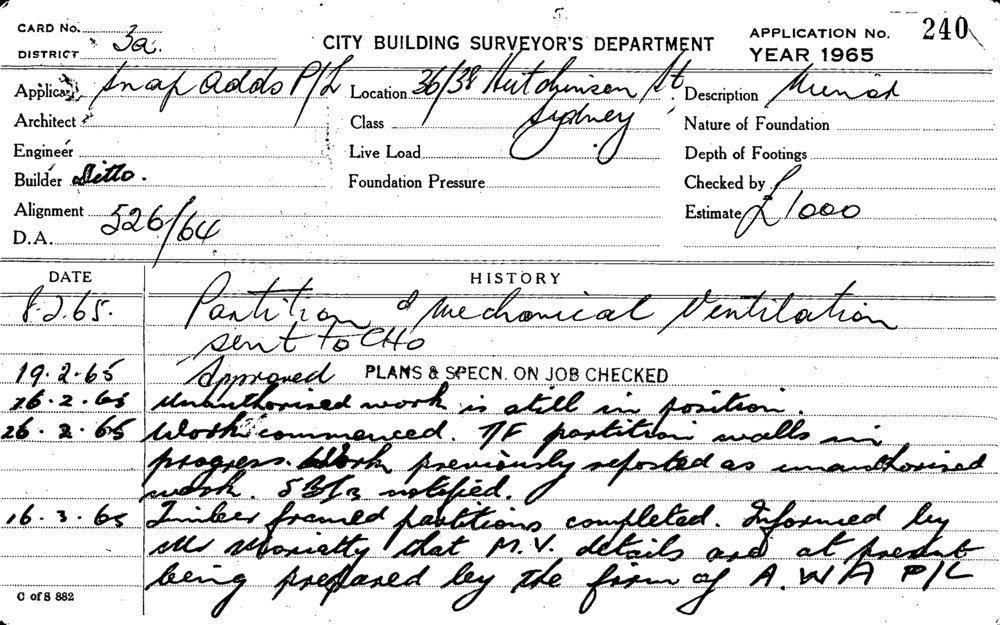 CARD No.
DISTRICT 3a.
CITY BUILDING SURVEYOR'S DEPARTMENT
APPLICATION No. 240
YEAR 1965
Applicant Snap Adds P/L
Location 36/38 Hutchinson St
Sydney
Description
Architect
Class
Nature of Foundation
Engineer
Live Load
Depth of Footings
Builder Ditto.
Foundation Pressure
Checked by
Alignment
Estimate £1000
D.A. 526/64
DATE HISTORY
8.2.65. Partition & Mechanical Ventilation
sent to CHO
19.2.65 Approved PLANS & SPECN. ON JOB CHECKED
26.2.65 Unauthorised work is still in position.
26.2.65 Work commenced. T/F partition walls in
progress. Work previously reported as unauthorised
work. notified.
16.3.65 Timber framed partitions completed. Informed by
Mr Moriatty that M.V. details are at present
being prepared by the firm of A.W.A P/L
C of S 882